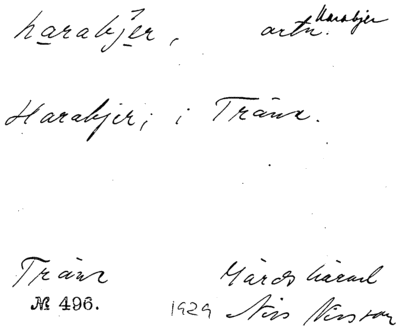 harabjer, ortn. Harabjer
Harabjer; i Tränе.
Träne Gärds härad
№ 496. 1929 Nils Nilsson